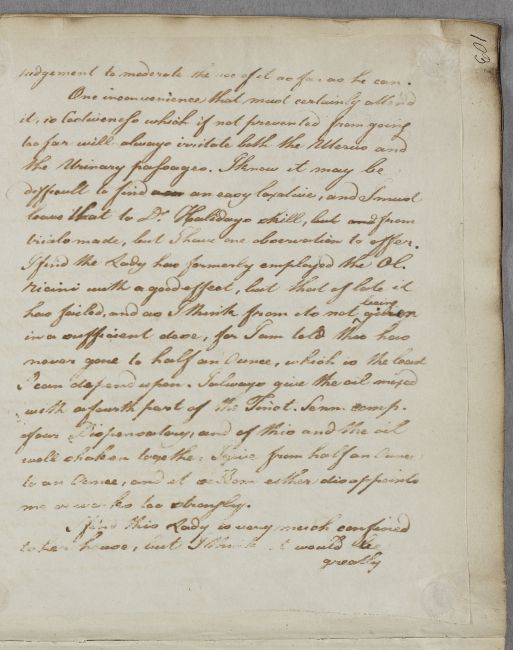 103
judgement to moderate the use of it as far as he can.
One inconvenience that must certainly attend
it, is Costiveness which if not prevented from going
too far will always irritate both the Uterus and
the Urinary passages. I know it may be
difficult to find an easy laxative, and I must
leave that to Dr. Halidays skill, but and from
trials made, but I have one observation to offer.
I find the Lady has formerly employed the Ol.
ricini with a good effect, but that of late it
has failed, and as I think from its not being given
in a sufficient dose, for I am told she has
never gone to half an Ounce, which is the least
I can depend upon. I always give the oil mixed
with a fourth part of the Tinct. Senn. comp.
of our Dispensatory, and of this and the oil
well shaken together I give from half an Ounce
to an Ounce, and it seldom either disappoints
me or works too strongly.
I find this Lady is very much confined
to her house, but I think it would be
greatly